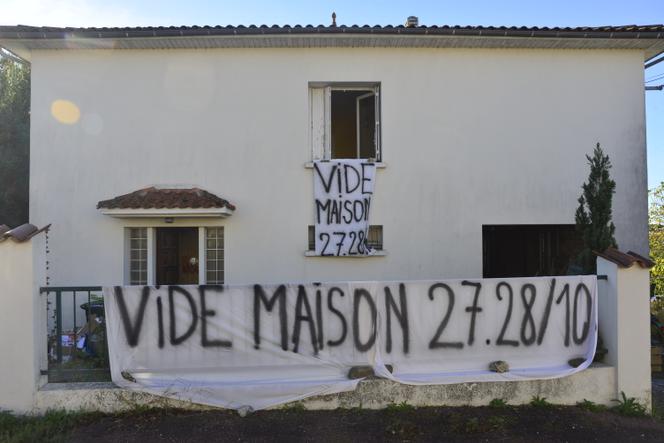 ViDE
MAISON
27.28/
ViDE MAiSON 27.28/10